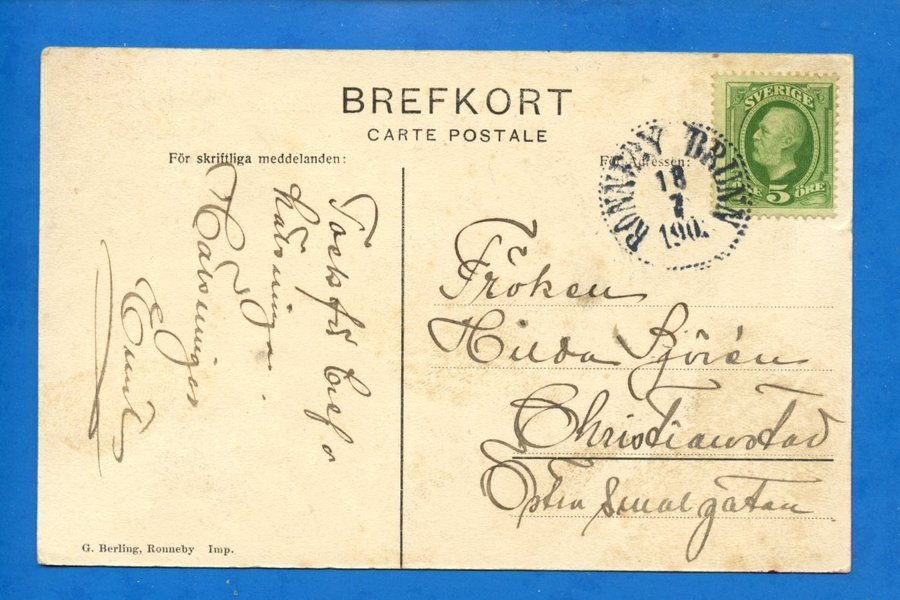 BREFKORT
CARTE POSTALE
För skriftliga meddelanden:
För Adressen:
SVERIGE
5 ÖRE
RONNEBY BRUNN
18
7
190
Tack för bref o
hälsningar
Hälsningar
Fröken
Hilda Sjörén
Christianstad
Östra Smalgatan
G. Berling, Ronneby Imp.